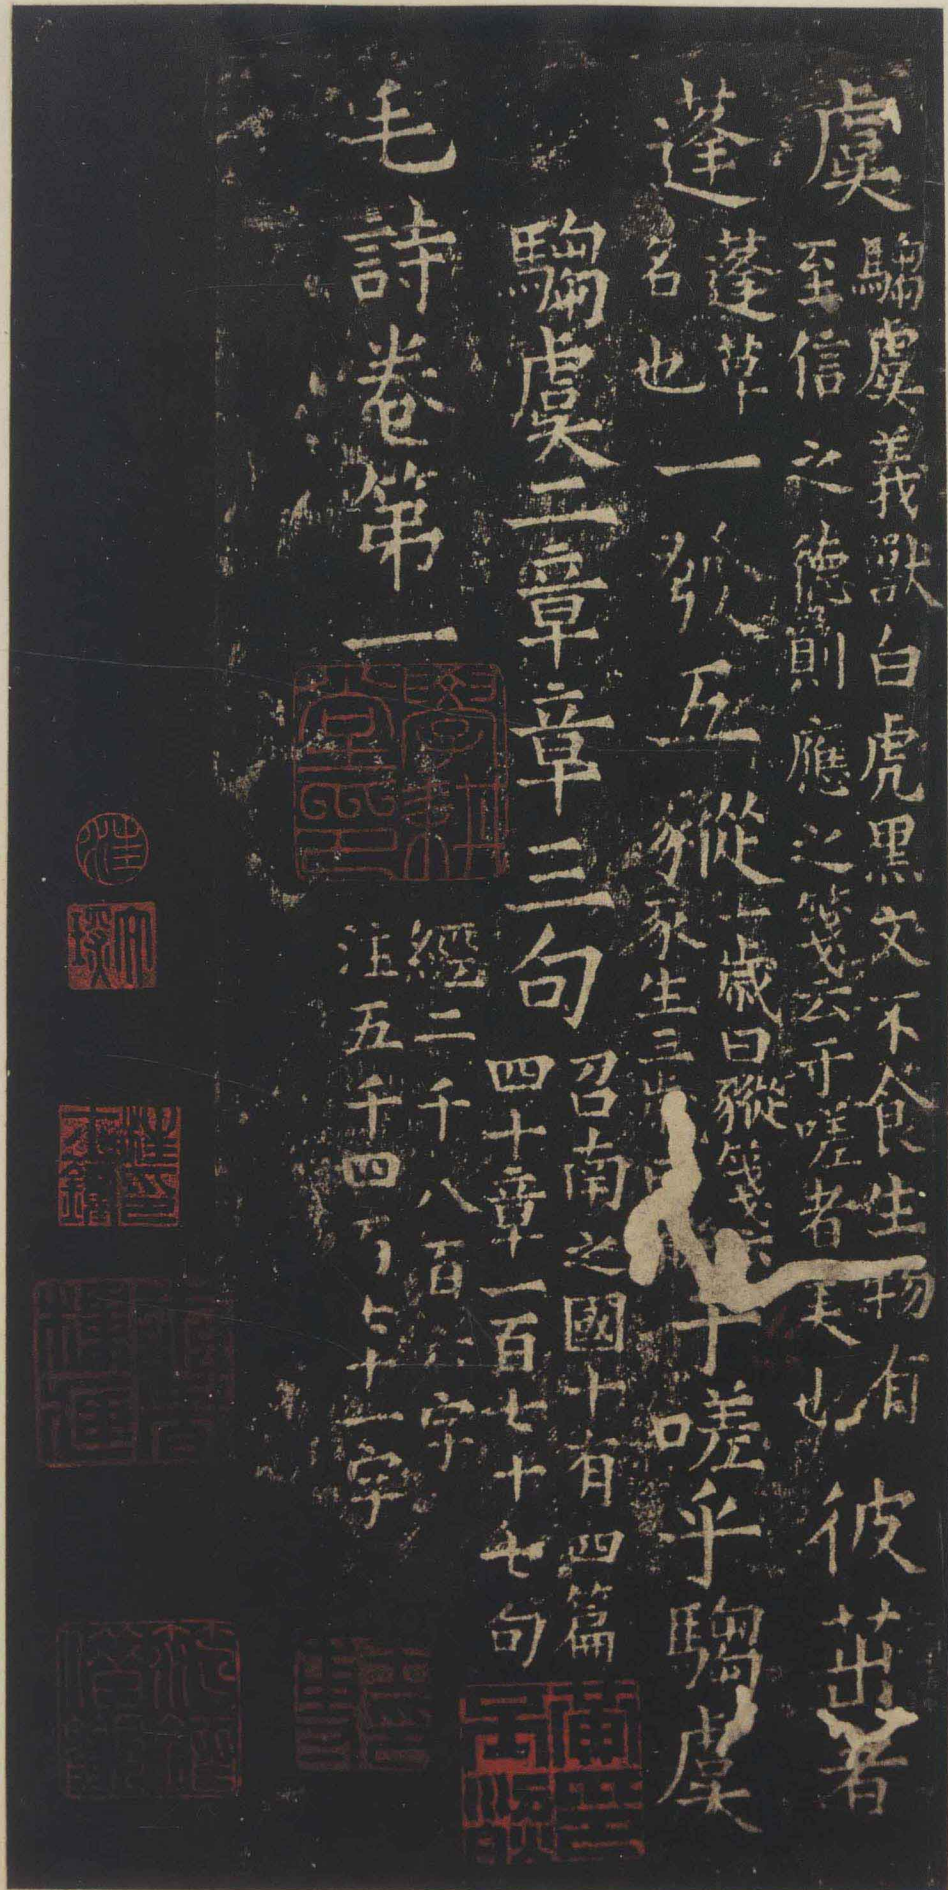 虞
騶虞義獸白虎黑文不食生物有
至信之德則應之箋云于嗟者美也
彼茁者
蓬
蓬草
名也
一發五豵
一歲曰豵箋云
豕生三
于嗟乎騶虞
騶虞二章章三句
召南之國十有四篇
四十章一百七十七句
毛詩卷第一
經二千八百六字
注五千四百十一字